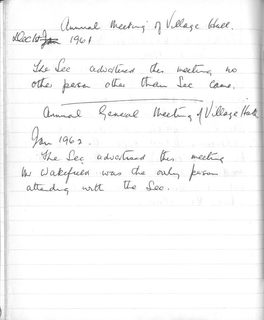 Annual Meeting of Village Hall.
Dec 1st Jan 1961
The Sec advertised this meeting no
other person other than Sec came.
Annual General Meeting of Village Hall
Jan 1962.
The Sec advertised this meeting
Mr Wakefield was the only person
attending with the Sec.